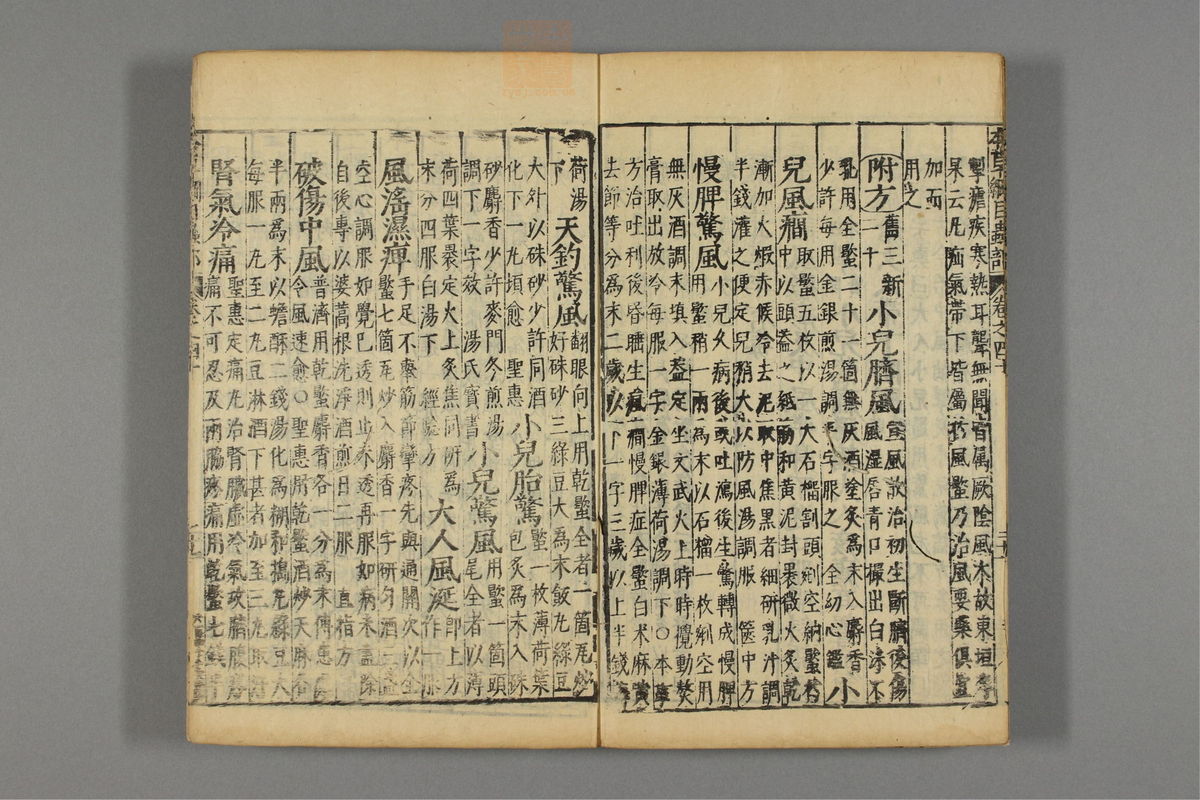 本草綱目蟲部　卷之四十
掣瘧疾寒熱耳聾無聞皆屬厥陰風木故東垣李
杲云凡疝氣帶下皆屬於風蠍乃治風要藥俱宜
加而用之
附方 舊三新一十 小兒臍風 宣風散治初生斷臍後傷風濕唇青口撮出白沫不
乳用全蠍二十一箇無灰酒塗炙爲末入麝香
少許每用金銀煎湯調半字服之 全幼心鑑 小
兒風癇 取蠍五枚以一大石榴割頭剜空納蠍於中以頭蓋之紙筋和黃泥封裹微火炙乾
漸加火煅赤候冷去泥取中焦黑者細研乳汁調
半錢灌之便定兒稍大以防風湯調服 篋中方
慢脾驚風 小兒久病後或吐瀉後生驚轉成慢脾用蠍稍一兩爲末以石榴一枚剜空用
無灰酒調末填入蓋定坐文武火上時時攪動熬
膏取出放冷每服一字金銀薄荷湯調下○本事
方治吐利後昏睡生風癇慢脾症全蠍白朮麻黃
去節等分爲末二歲以下一字三歲以上半錢薄
荷湯下 天釣驚風 翻眼向上用乾蠍全者一箇瓦炒好硃砂三綠豆大爲末飯丸綠豆
大外以硃砂少許同酒化下一丸頃愈 聖惠 小兒胎驚 蠍一枚薄荷葉包炙爲末入硃
砂麝香少許麥門冬煎湯調下一字效 湯氏寶書 小兒驚風 用蠍一箇頭尾全者以薄
荷四葉裹定火上炙焦同研爲末分四服白湯下 經驗方 大人風涎 即上方作一服
風淫濕痺 手足不擧筋節攣疼先與通關次以全蠍七箇瓦炒入麝香一字研勻酒三盞
空心調服如覺已透則止未透再服如病未盡除
自後專以婆蒿根洗淨酒煎日二服 直指方
破傷中風 普濟用乾蠍麝香各一分爲末傅患處令風速愈○聖惠用乾蠍酒炒天麻各
半兩爲末以蟾酥二錢湯化爲糊和搗丸綠豆大
每服一丸至二丸豆淋酒下甚者加至三丸取汗
腎氣冷痛 聖惠定痛丸治腎臟虛冷氣攻臍腹疼痛不可忍及兩脇疼痛用乾蠍七錢半